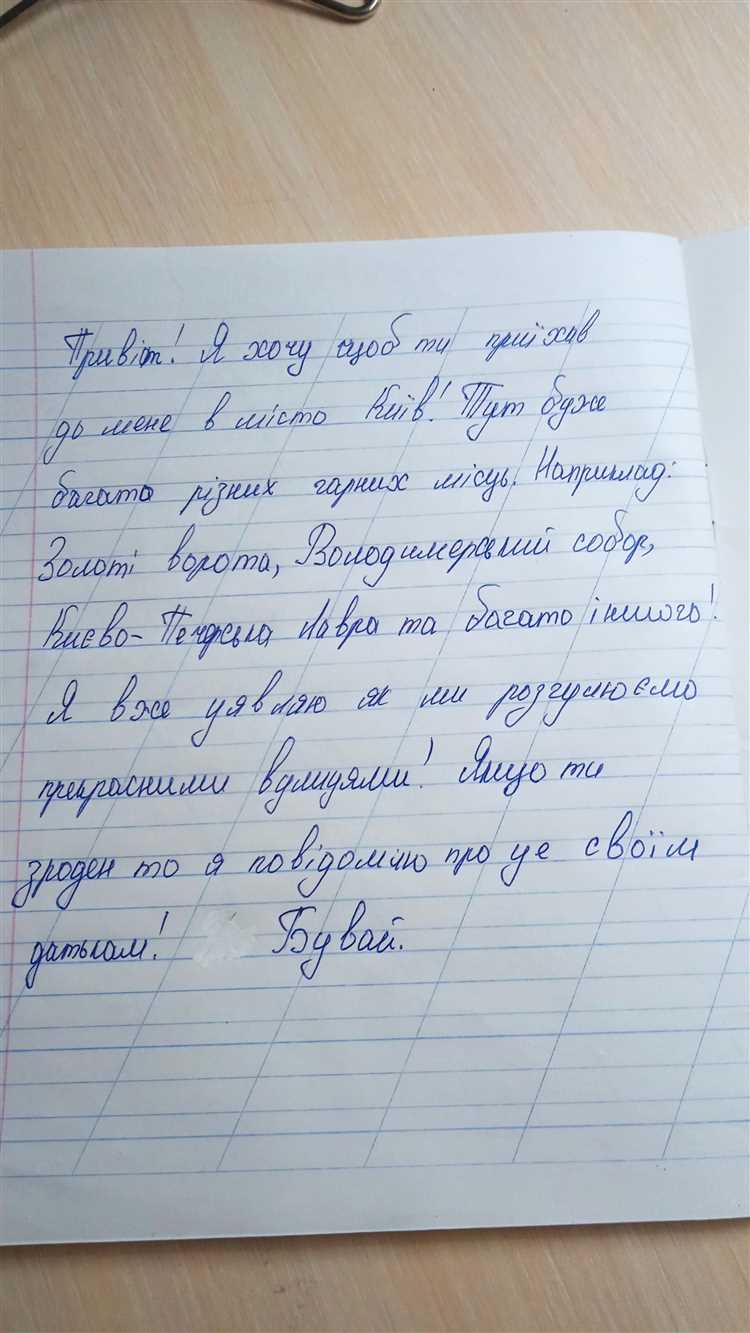 Привіт! Я хочу щоб ти приїхав
до мене в місто Київ! Тут дуже
багато різних гарних місць. Наприклад:
Золоті ворота, Володимерський собор,
Києво-Печерська Лавра та багато іншого!
Я вже уявляю як ми розгулюємо
прекрасними вулицями! Якщо ти
згоден то я повідомлю про це своїм
батькам! Бувай.